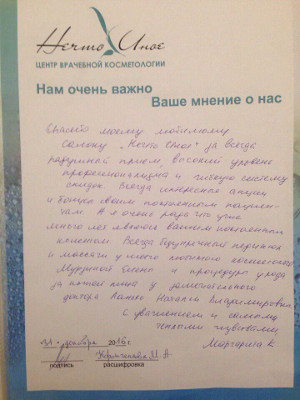 Нечто Иное
ЦЕНТР ВРАЧЕБНОЙ КОСМЕТОЛОГИИ
Нам очень важно
Ваше мнение о нас
Спасибо моему любимому
салону "Нечто Иное" за всегда
радушный прием, высокий уровень
профессионализма и гибкую систему
скидок. Всегда интересные акции
и бонусы своим постоянным пациен-
там. А я очень рада что уже
много лет являюсь вашим постоянным
клиентом. Всегда безупречный
и у моего любимого косметолога
и процедуры ухода
за кожей лица у замечательного
доктора Натальи Владимировны
С уважением и самыми
теплыми чувствами,
Маргарита К
31 декабря 2016 г.
подпись расшифровка